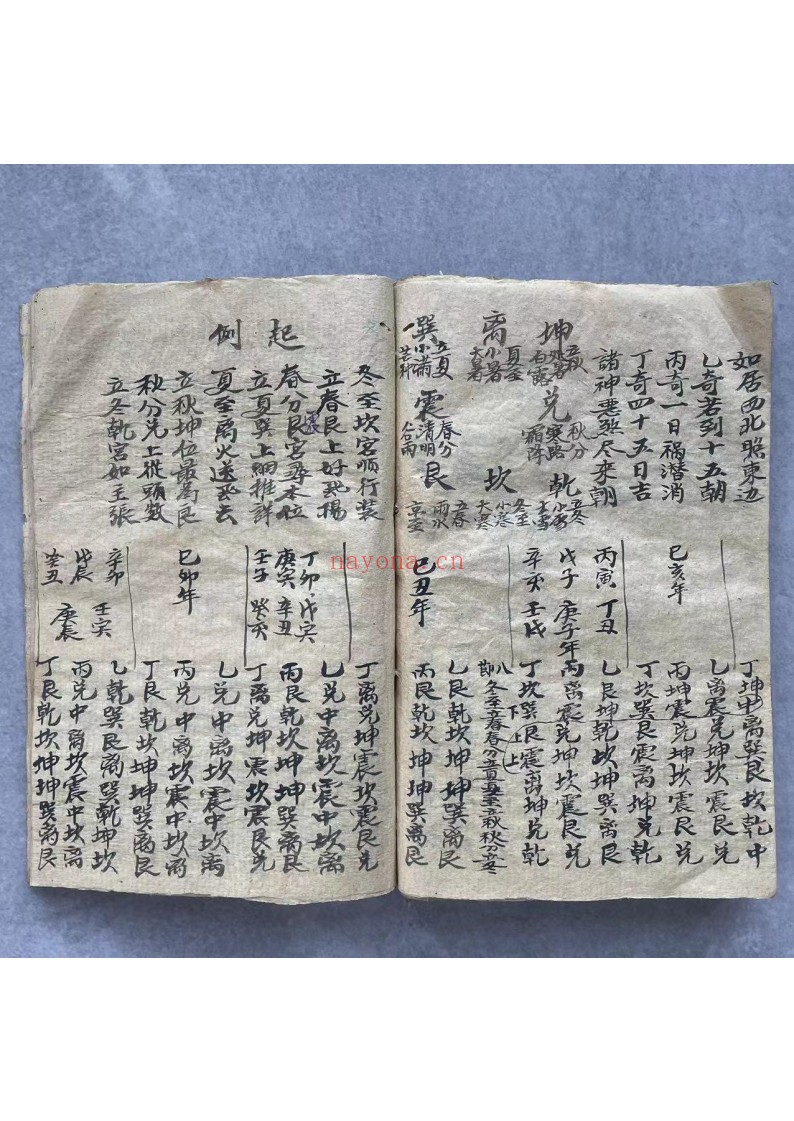 如居西北照东边
乙奇若到十五朝
丙奇一日祸潜消
丁奇四十五日吉
諸神惡煞尽来朝
坤
立秋
处暑
白露
离
夏至
小暑
大暑
巽
立夏
小满
芒种
兑
秋分
寒路
霜降
震
春分
清明
谷雨
乾
立冬
小雪
大雪
坎
冬至
小寒
大寒
艮
立春
雨水
京蛰
巳亥年
丁坤中离巽艮坎乾中
乙离震兑坤坎震艮兑
丙坤震兑坤坎震艮兑
丁坎巽艮震离坤兑乾
丙寅 丁丑
戊子 庚子年
辛亥 壬戌
乙艮坤乾坎坤巽离艮
丙离震兑坤坎震艮兑
丁坎巽艮震离坤兑乾
八
即冬至立春春分立夏夏至立秋秋分立冬
下上上
巳丑年
乙艮乾坎坤坤巽离艮
丙艮乾坎坤坤巽离艮
起例
冬至坎宫顺行装
立春艮上好飛揚
春分艮宫尋本位
震
立夏巽上細推詳
夏至离火送飛去
立秋坤位最为良
秋分兑上從頭数
立冬乾宫如主張
丁卯 戊寅
庚寅 辛丑
壬子 癸亥
丁离兑坤震坎震艮兑
乙兑中离坎震中坎离
丙艮乾坎坤坤巽离艮
丁离兑坤震坎震艮兑
巳卯年
乙兑中离坎震中坎离
丙兑中离坎震中坎离
丁艮乾坎坤坤巽离艮
辛卯 壬寅
戊辰 庚辰
癸丑
乙乾巽艮离巽乾坤坎
丙兑中离坎震中坎离
丁艮乾坎坤坤巽离艮
nayona.cn